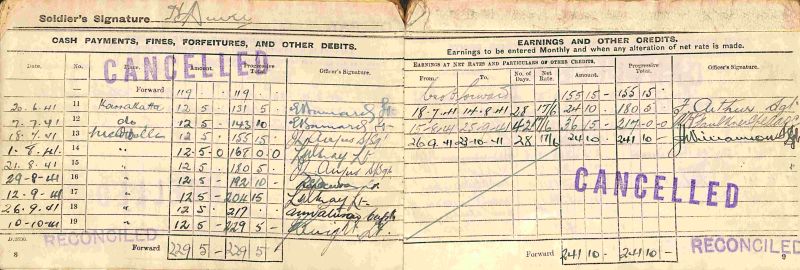 Soldier's Signature
CASH PAYMENTS, FINES, FORFEITURES, AND OTHER DEBITS.
CANCELLED
Date. No. Place. Amount. Progressive Total. Officer's Signature.
Forward 119 - 119 -
20.6.41 11 Karrakatta 12 5 - 131 5
7.7.41 12 do 12 5 - 143 10
18.7.41 13 12 5 - 155 15
1.8.41 14 " 12-5-0 168 0-0
21.8.41 15 " 12 5 180 5
29-8-41 16 " 12 5 - 192 10 -
12-9-41 17 " 12-5 - 204 15
26.9.41 18 " 12 5 - 217
10-10-41 19 " 12 5 - 229 5 -
D.2690.
RECONCILED
Forward 229 5 - 229 5 -
8
EARNINGS AND OTHER CREDITS.
Earnings to be entered Monthly and when any alteration of net rate is made.
EARNINGS AT NET RATES AND PARTICULARS OF OTHER CREDITS.
From To. No. of Days. Net Rate. Amount. Progressive Total. Officer's Signature.
forward 155 15 - 155 15 -
18-7-41 14-8-41 28 17/6 24 10 180 5 Arthur Sgt
15-8-41 25-9-41 42 17/6 36 15 - 217-0-0
26.9.41 23-10-41 28 17/6 24 10 241 10 - Williamson
CANCELLED
Forward 241 10 - 241 10 -
RECONCILED
9